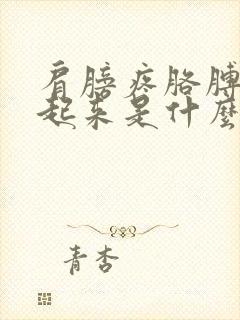 肩膀疼胳膊
起来是什麼
青杏